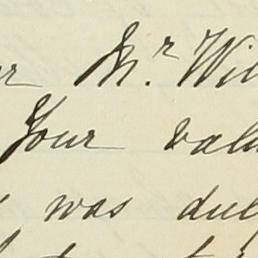 Mr. Wil
Your valu
was dul